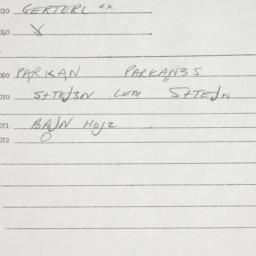 030 GERTERL xx
060
060 PARKAN PARKANZS
070 S+TEJZN LEM S+TEJN
071 BAJN HOJZ
072